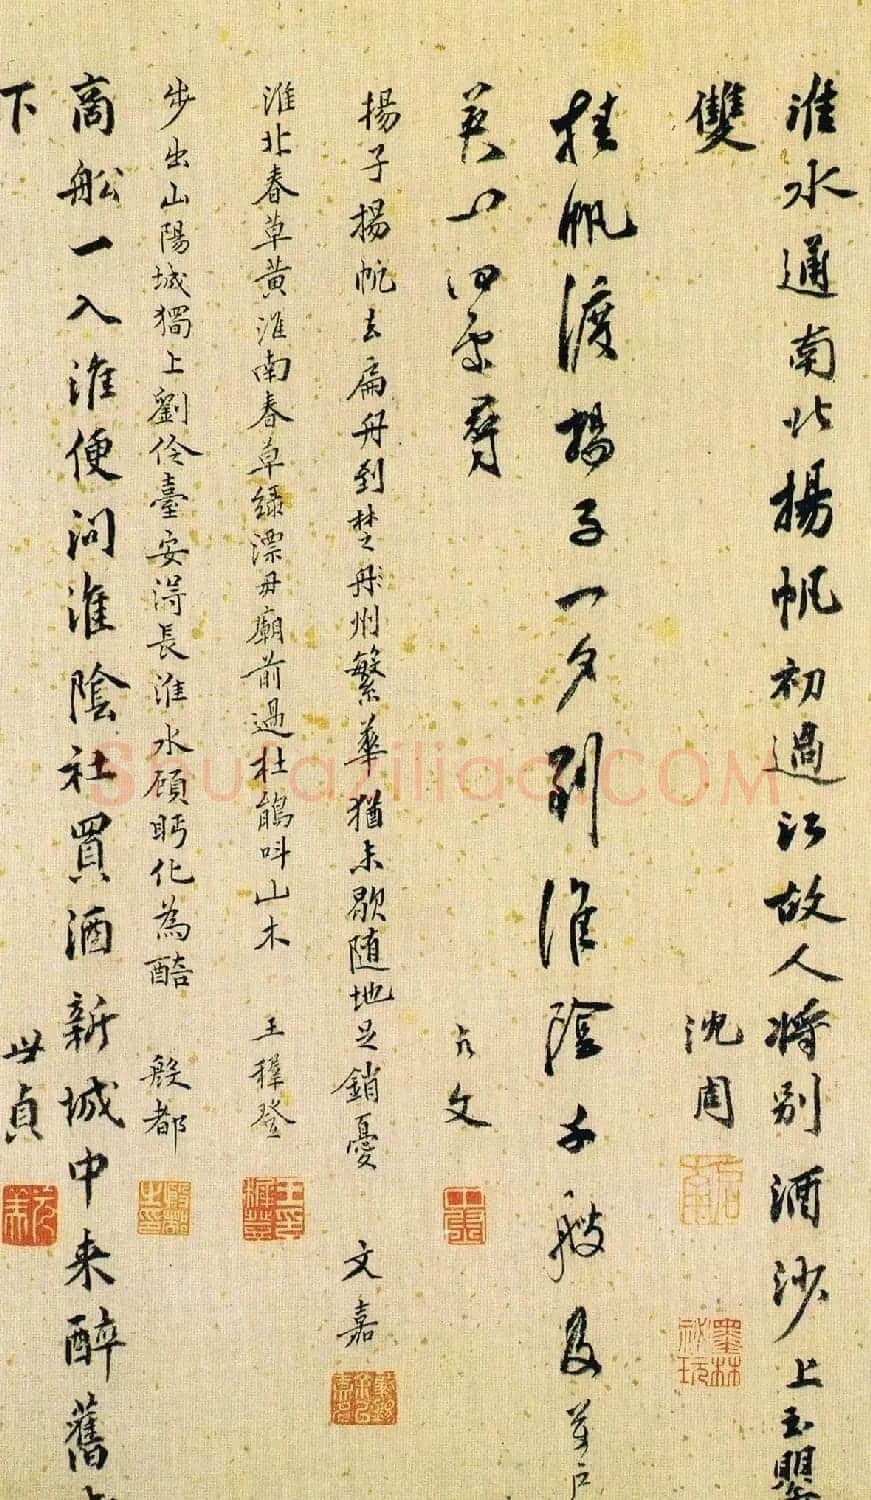 淮水通南北揚帆初過江故人將別酒沙上玉罌
雙
沈周
挂帆渡揚子一夕到淮陰千艘及萬戶
文
揚子揚帆去扁舟到楚州繁華猶未歇随地足銷憂 文嘉
淮北春草黄淮南春草緑漂母廟前過杜鵑叫山木 王穉登
步出山陽城獨上劉伶臺安得長淮水顧眄化為醅 殷都
商船一入淮便問淮陰社買酒新城中来醉舊
下
世貞
墨林
祕玩
Shufaziliao.COM